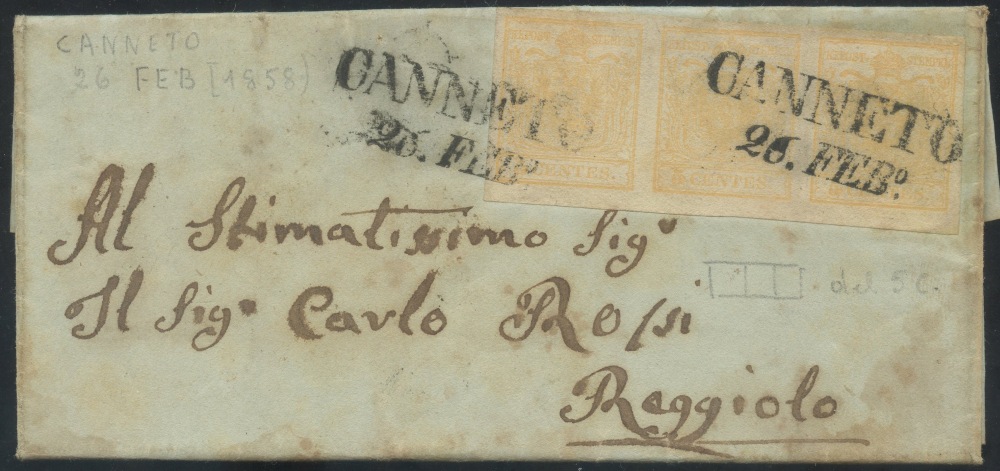 CANNETO
26 FEB [1858)
CANNETO
26. FEB.º
CANNETO
26. FEB.º
CENTES.
5 CENTES.
CENTES.
Al Stimatissimo Sigʳ
Il Sigʳ Carlo Rossi
Reggiolo
del 5 C.